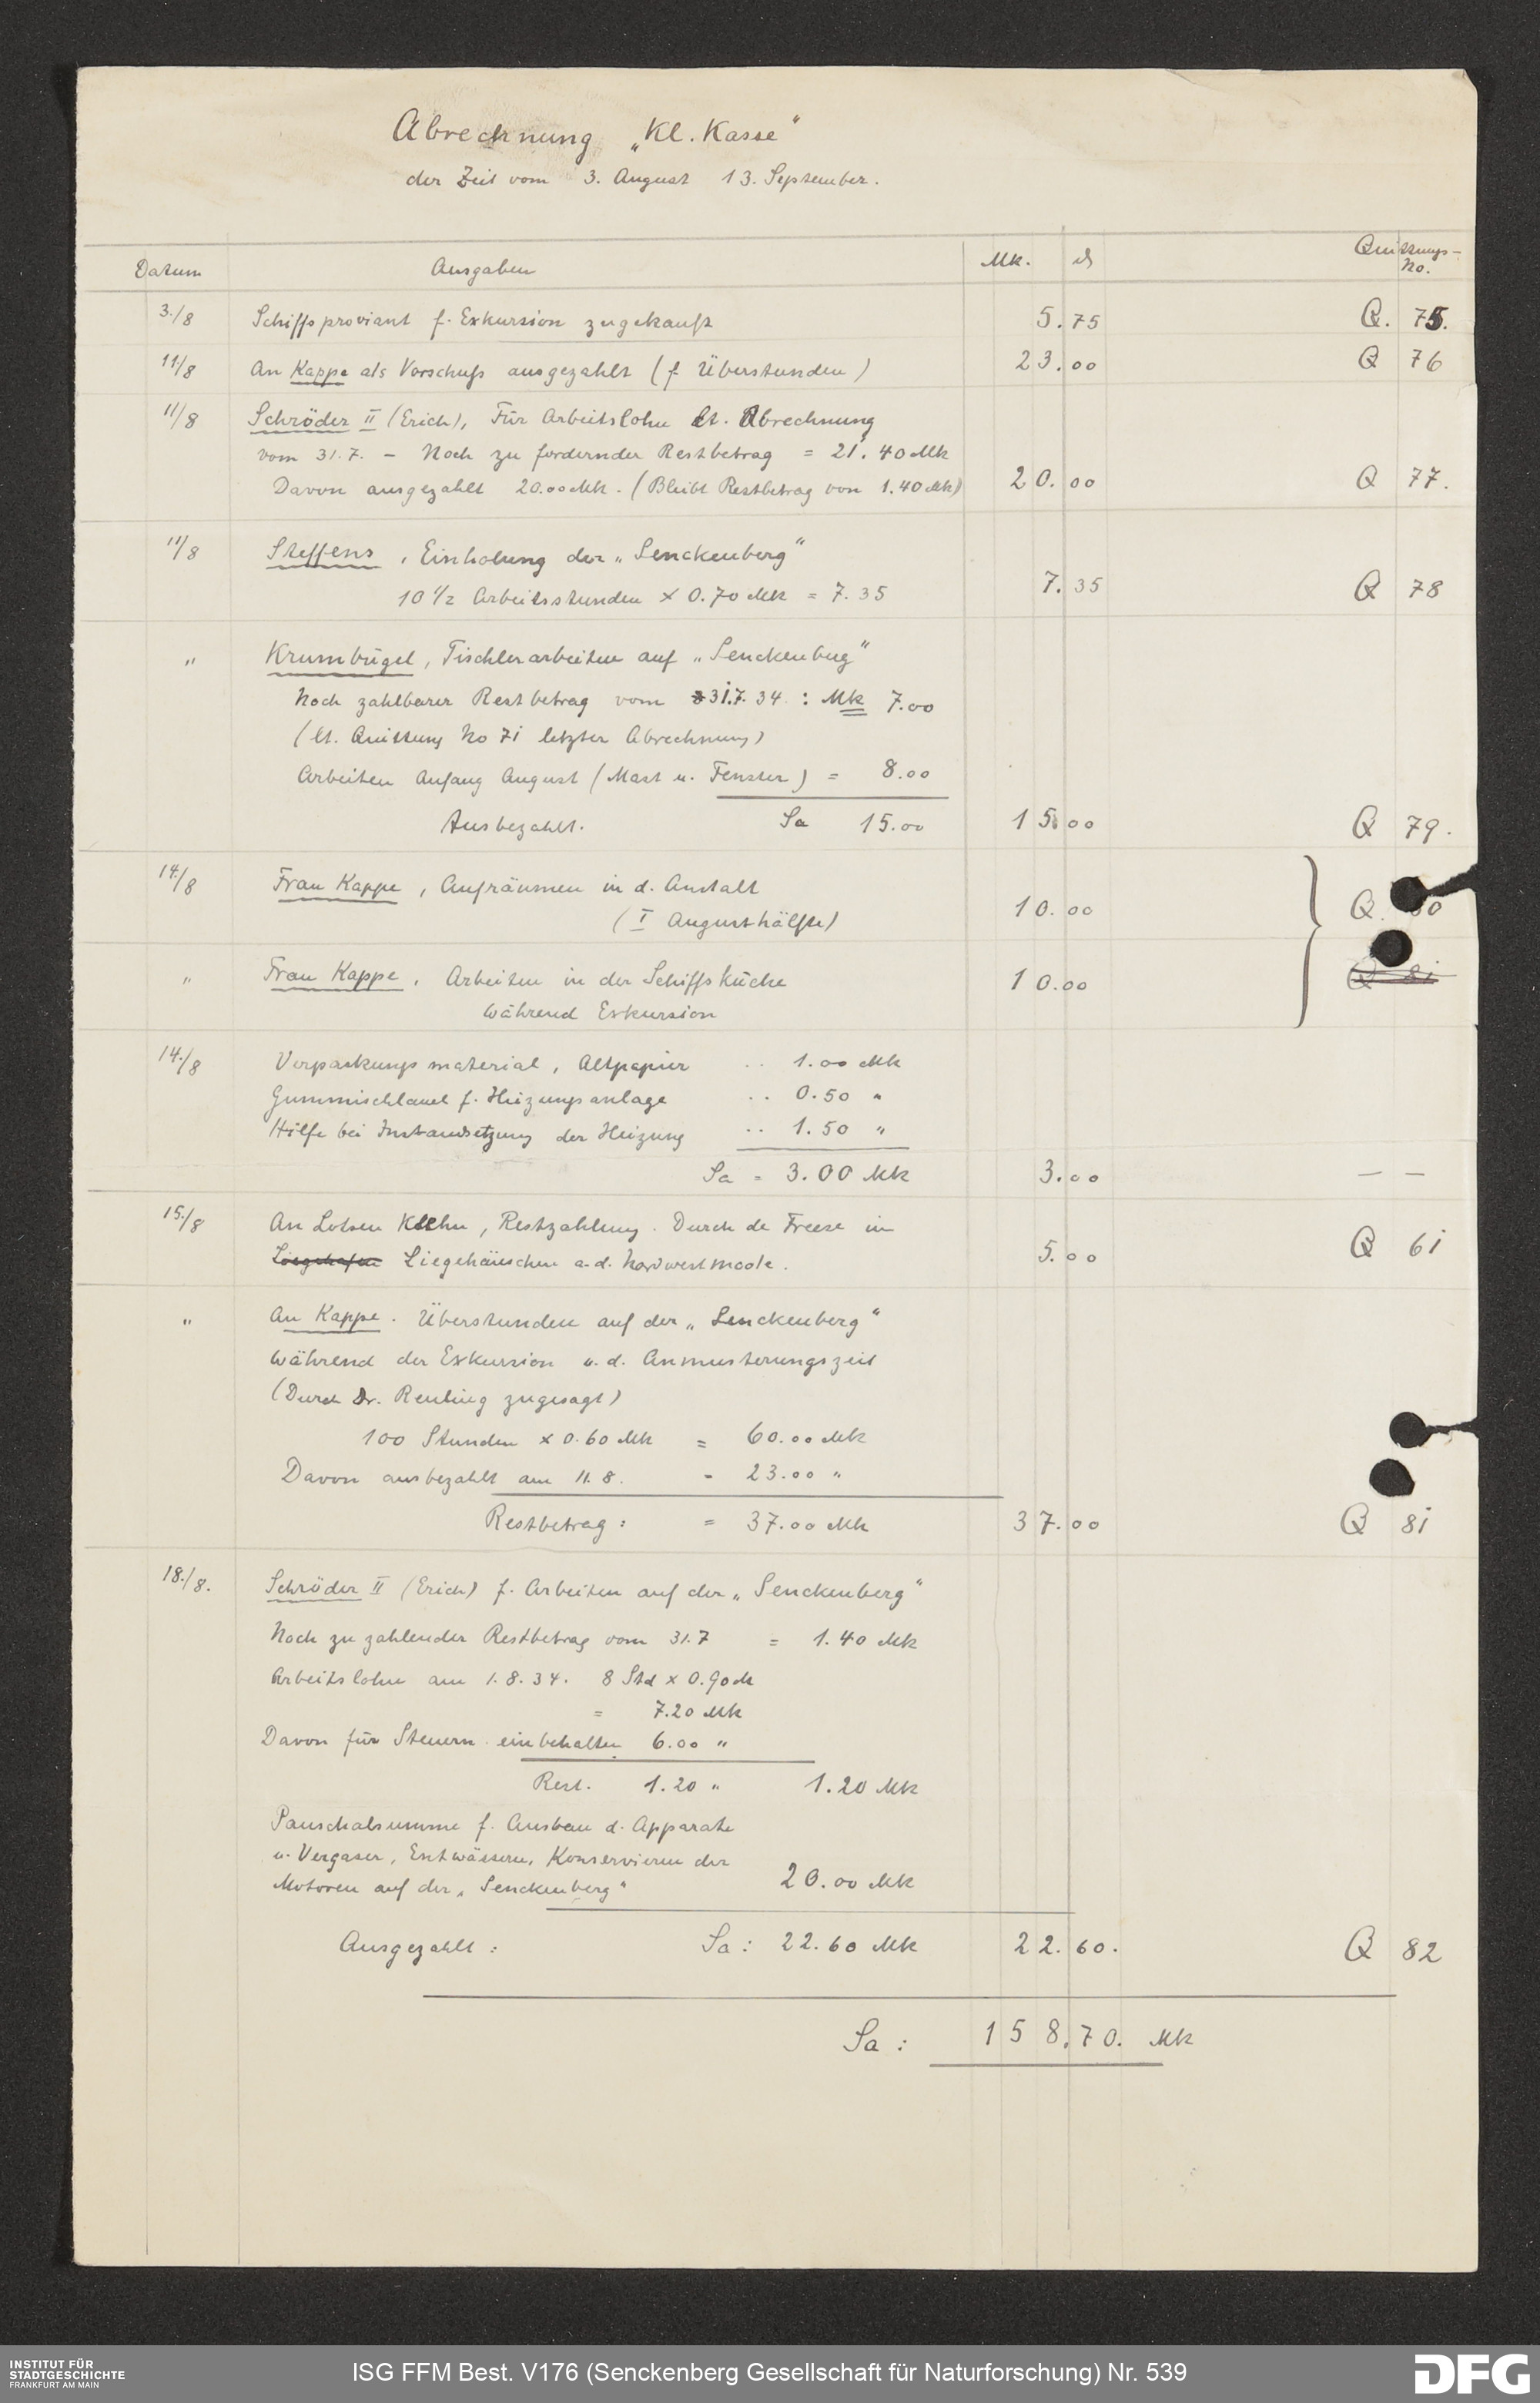 Abrechnung „Kl. Kasse“
der Zeit vom 3. August 13. September.
Datum Ausgaben Mk. ₰ Quittungs-
No.
3./8 Schiffsproviant f. Exkursion zugekauft 5.75 Q. 75.
11/8 An Kappe als Vorschuß ausgezahlt (f Überstunden) 23.00 Q 76
11/8 Schröder II (Erich), Für Arbeitslohn lt. Abrechnung
vom 31.7. – Noch zu fordernder Restbetrag = 21.40 Mk
Davon ausgezahlt 20.00 Mk. (Bleibt Restbetrag von 1.40 Mk) 20.00 Q 77.
11/8 Steffens, Einholung der „Senckenberg“
10 1/2 Arbeitsstunden x 0.70 Mk = 7.35 7.35 Q 78
„ Krumbügel, Tischlerarbeiten auf „Senckenberg“
Noch zahlbarer Restbetrag vom 31.7.34 : Mk 7.00
(lt. Quittung No 71 letzter Abrechnung)
Arbeiten Anfang August (Mast u. Fenster) = 8.00
Ausbezahlt. Sa 15.00 15.00 Q 79.
14/8 Frau Kappe, Aufräumen in d. Anstalt
(I Augusthälfte) 10.00 Q. 80
„ Frau Kappe, Arbeiten in der Schiffsküche 10.00 Q 81
während Exkursion
14./8 Verpackungsmaterial, Altpapier .. 1.00 Mk
Gummischlauch f. Heizungsanlage .. 0.50 „
Hilfe bei Instandsetzung der Heizung .. 1.50 „
Sa = 3.00 Mk 3.00 — —
15./8 An Lotsen Kühn, Restzahlung. Durch de Freese in
Liegehafen Liegehäuschen a.d. Nordwestmoole. 5.00 Q 61
„ An Kappe. Überstunden auf der „Senckenberg“
während der Exkursion u. d. Anmusterungszeit
(Durch Dr. Reuling zugesagt)
100 Stunden x 0.60 Mk = 60.00 Mk
Davon ausbezahlt am 11.8. - 23.00 „
Restbetrag : = 37.00 Mk 37.00 Q 81
18./8. Schröder II (Erich) f. Arbeiten auf der „Senckenberg“
Noch zu zahlender Restbetrag vom 31.7 = 1.40 Mk
Arbeitslohn am 1.8.34. 8 Std x 0.90 M
= 7.20 Mk
Davon für Steuern einbehalten 6.00 „
Rest. 1.20 „ 1.20 Mk
Pauschalsumme f. Ausbau d. Apparate
u. Vergaser, Entwässern, Konservieren der
Motoren auf der „Senckenberg“ 20.00 Mk
Ausgezahlt : Sa : 22.60 Mk 22.60. Q 82
Sa : 158.70. Mk
INSTITUT FÜR
STADTGESCHICHTE
FRANKFURT AM MAIN
ISG FFM Best. V176 (Senckenberg Gesellschaft für Naturforschung) Nr. 539
DFG